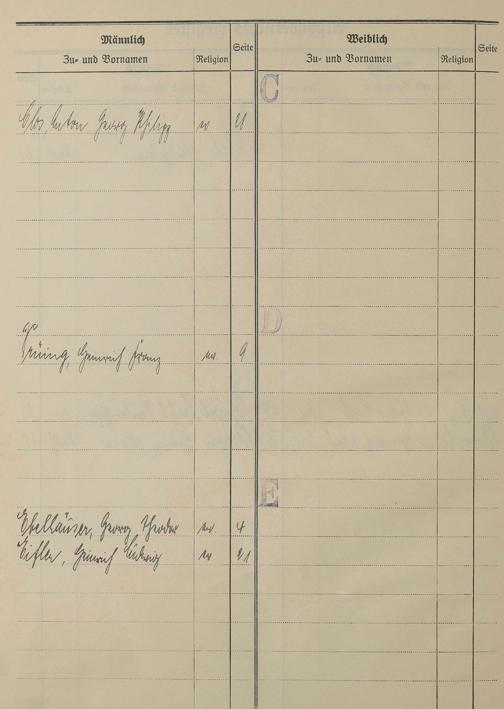 Männlich
Weiblich
Zu- und Vornamen Religion Seite
Zu- und Vornamen Religion Seite
C
Clos, Anton Georg Philipp ev 20
D
Heinrich Franz ev. 9
E
Ebelhäuser, Georg Theodor ev. 4
Eifler, Heinrich Ludwig ev 21